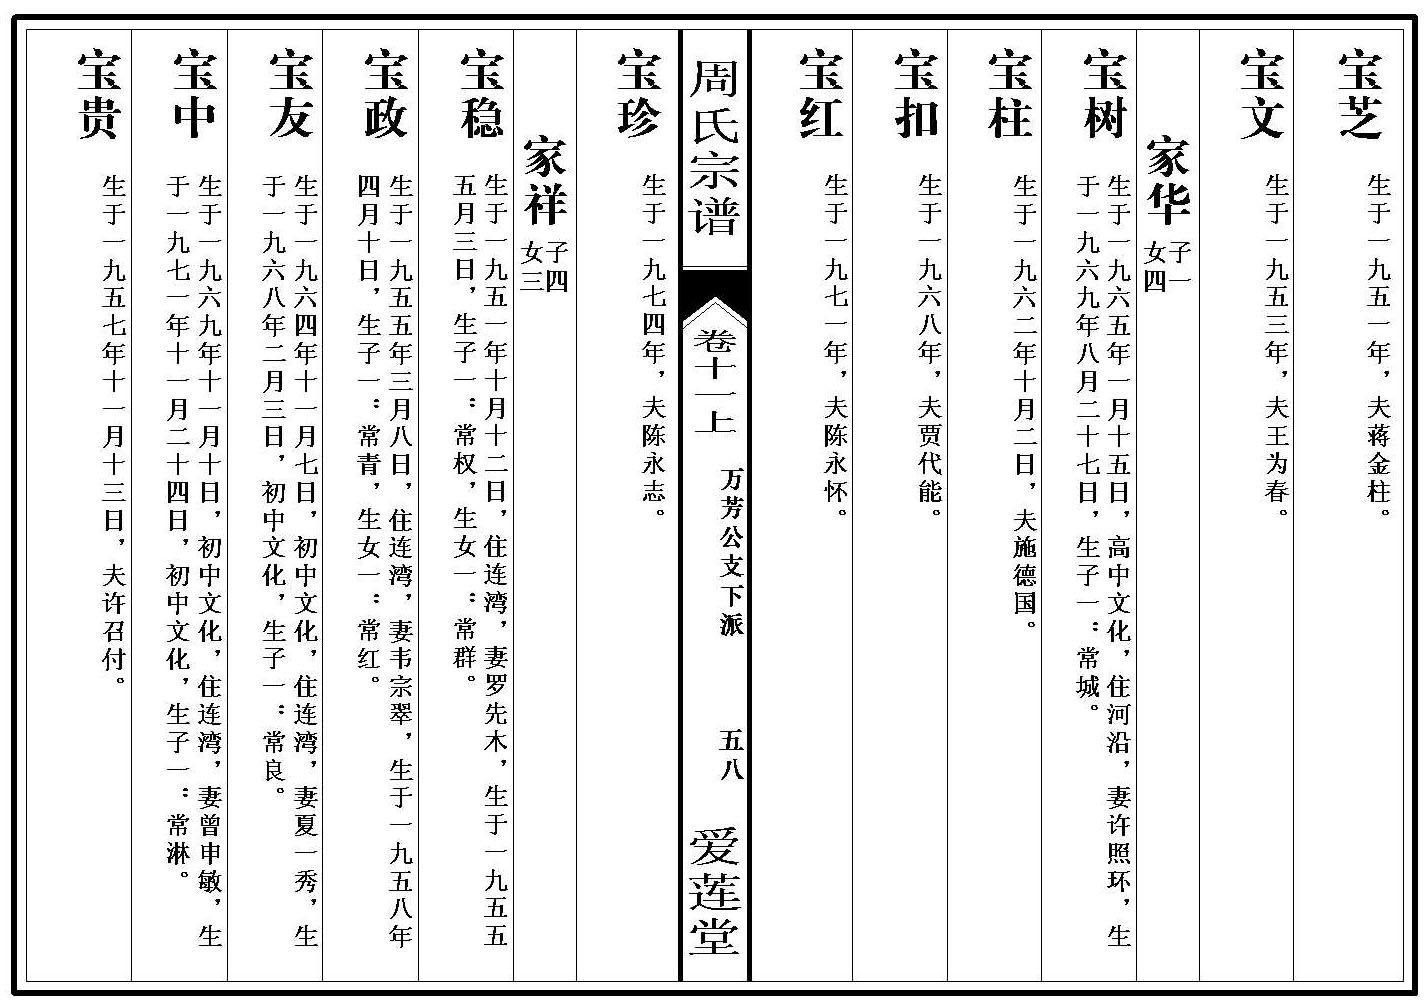 宝芝
生于一九五一年，夫蒋金柱。
宝文
生于一九五三年，夫王为春。
家华
子一
女四
宝树
生于一九六五年一月十五日，高中文化，住河沿，妻许照环，生
于一九六九年八月二十七日，生子一：常城。
宝柱
生于一九六二年十月二日，夫施德国。
宝扣
生于一九六八年，夫贾代能。
宝红
生于一九七一年，夫陈永怀。
周氏宗谱
卷十一上
万芳公支下派
五八
爱莲堂
宝珍
生于一九七四年，夫陈永志。
家祥
子四
女三
宝稳
生于一九五一年十月十二日，住连湾，妻罗先木，生于一九五五
五月三日，生子一：常权，生女一：常群。
宝政
生于一九五五年三月八日，住连湾，妻韦宗翠，生于一九五八年
四月十日，生子一：常青，生女一：常红。
宝友
生于一九六四年十一月七日，初中文化，住连湾，妻夏一秀，生
于一九六八年二月三日，初中文化，生子一：常良。
宝中
生于一九六九年十一月十日，初中文化，住连湾，妻曾申敏，生
于一九七一年十一月二十四日，初中文化，生子一：常淋。
宝贵
生于一九五七年十一月十三日，夫许召付。